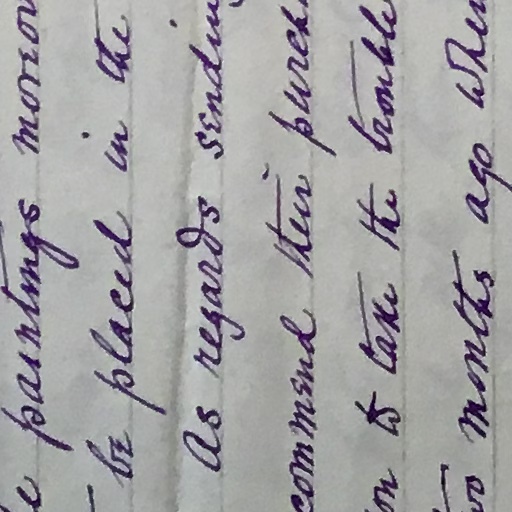 e paintings moreov
be placed in the
As regards sending
commend their purch
on to take the trouble
two months ago when